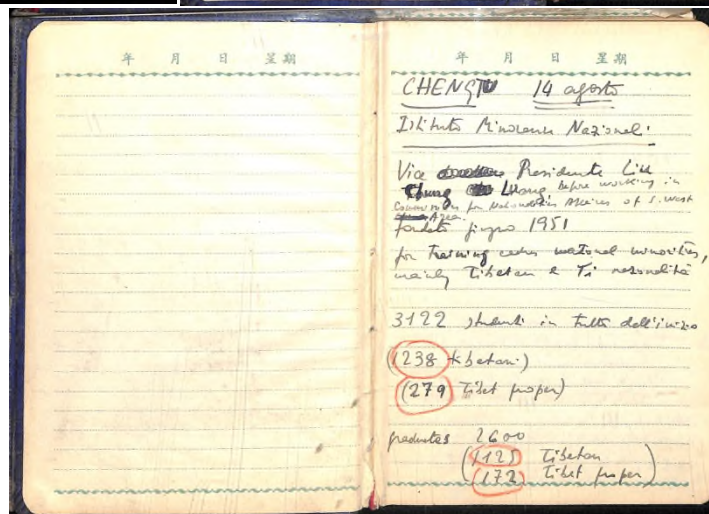 年 月 日 星期
年 月 日 星期
CHENGTU 14 agosto
Istituto Minoranze Nazionali
Vice Presidente Liu
Chung Luong before working in
Commission for Nationalities Affairs of S. West
Area
fondato giugno 1951
for training cadres national minorities,
mainly Tibetan e Yi nazionalità
3122 studenti in tutto dall'inizio
(1238 tibetani)
(279 Tibet proper)
graduates 2600
(1125 Tibetan
172 Tibet proper)